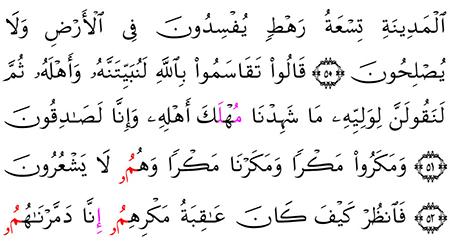 اَ۬لْمَدِينَةِ تِسْعَةُ رَهْطٖ يُفْسِدُونَ فِى اِ۬لْأَرْضِ وَلَا
يُصْلِحُونَ ٥٠ قَالُوا۟ تَقَاسَمُوا۟ بِاللَّهِ لَنُبَيِّتَنَّهُۥ وَأَهْلَهُۥ ثُمَّ
لَنَقُولَنَّ لِوَلِيِّهِۦ مَا شَهِدْنَا مُهْلَكَ أَهْلِهِۦ وَإِنَّا لَصَٰدِقُونَ
٥١ وَمَكَرُوا۟ مَكْرٗا وَمَكَرْنَا مَكْرٗا وَهُمُۥ لَا يَشْعُرُونَ
٥٢ فَانظُرْ كَيْفَ كَانَ عَٰقِبَةُ مَكْرِهِمُۥ إِنَّا دَمَّرْنَٰهُمُۥ